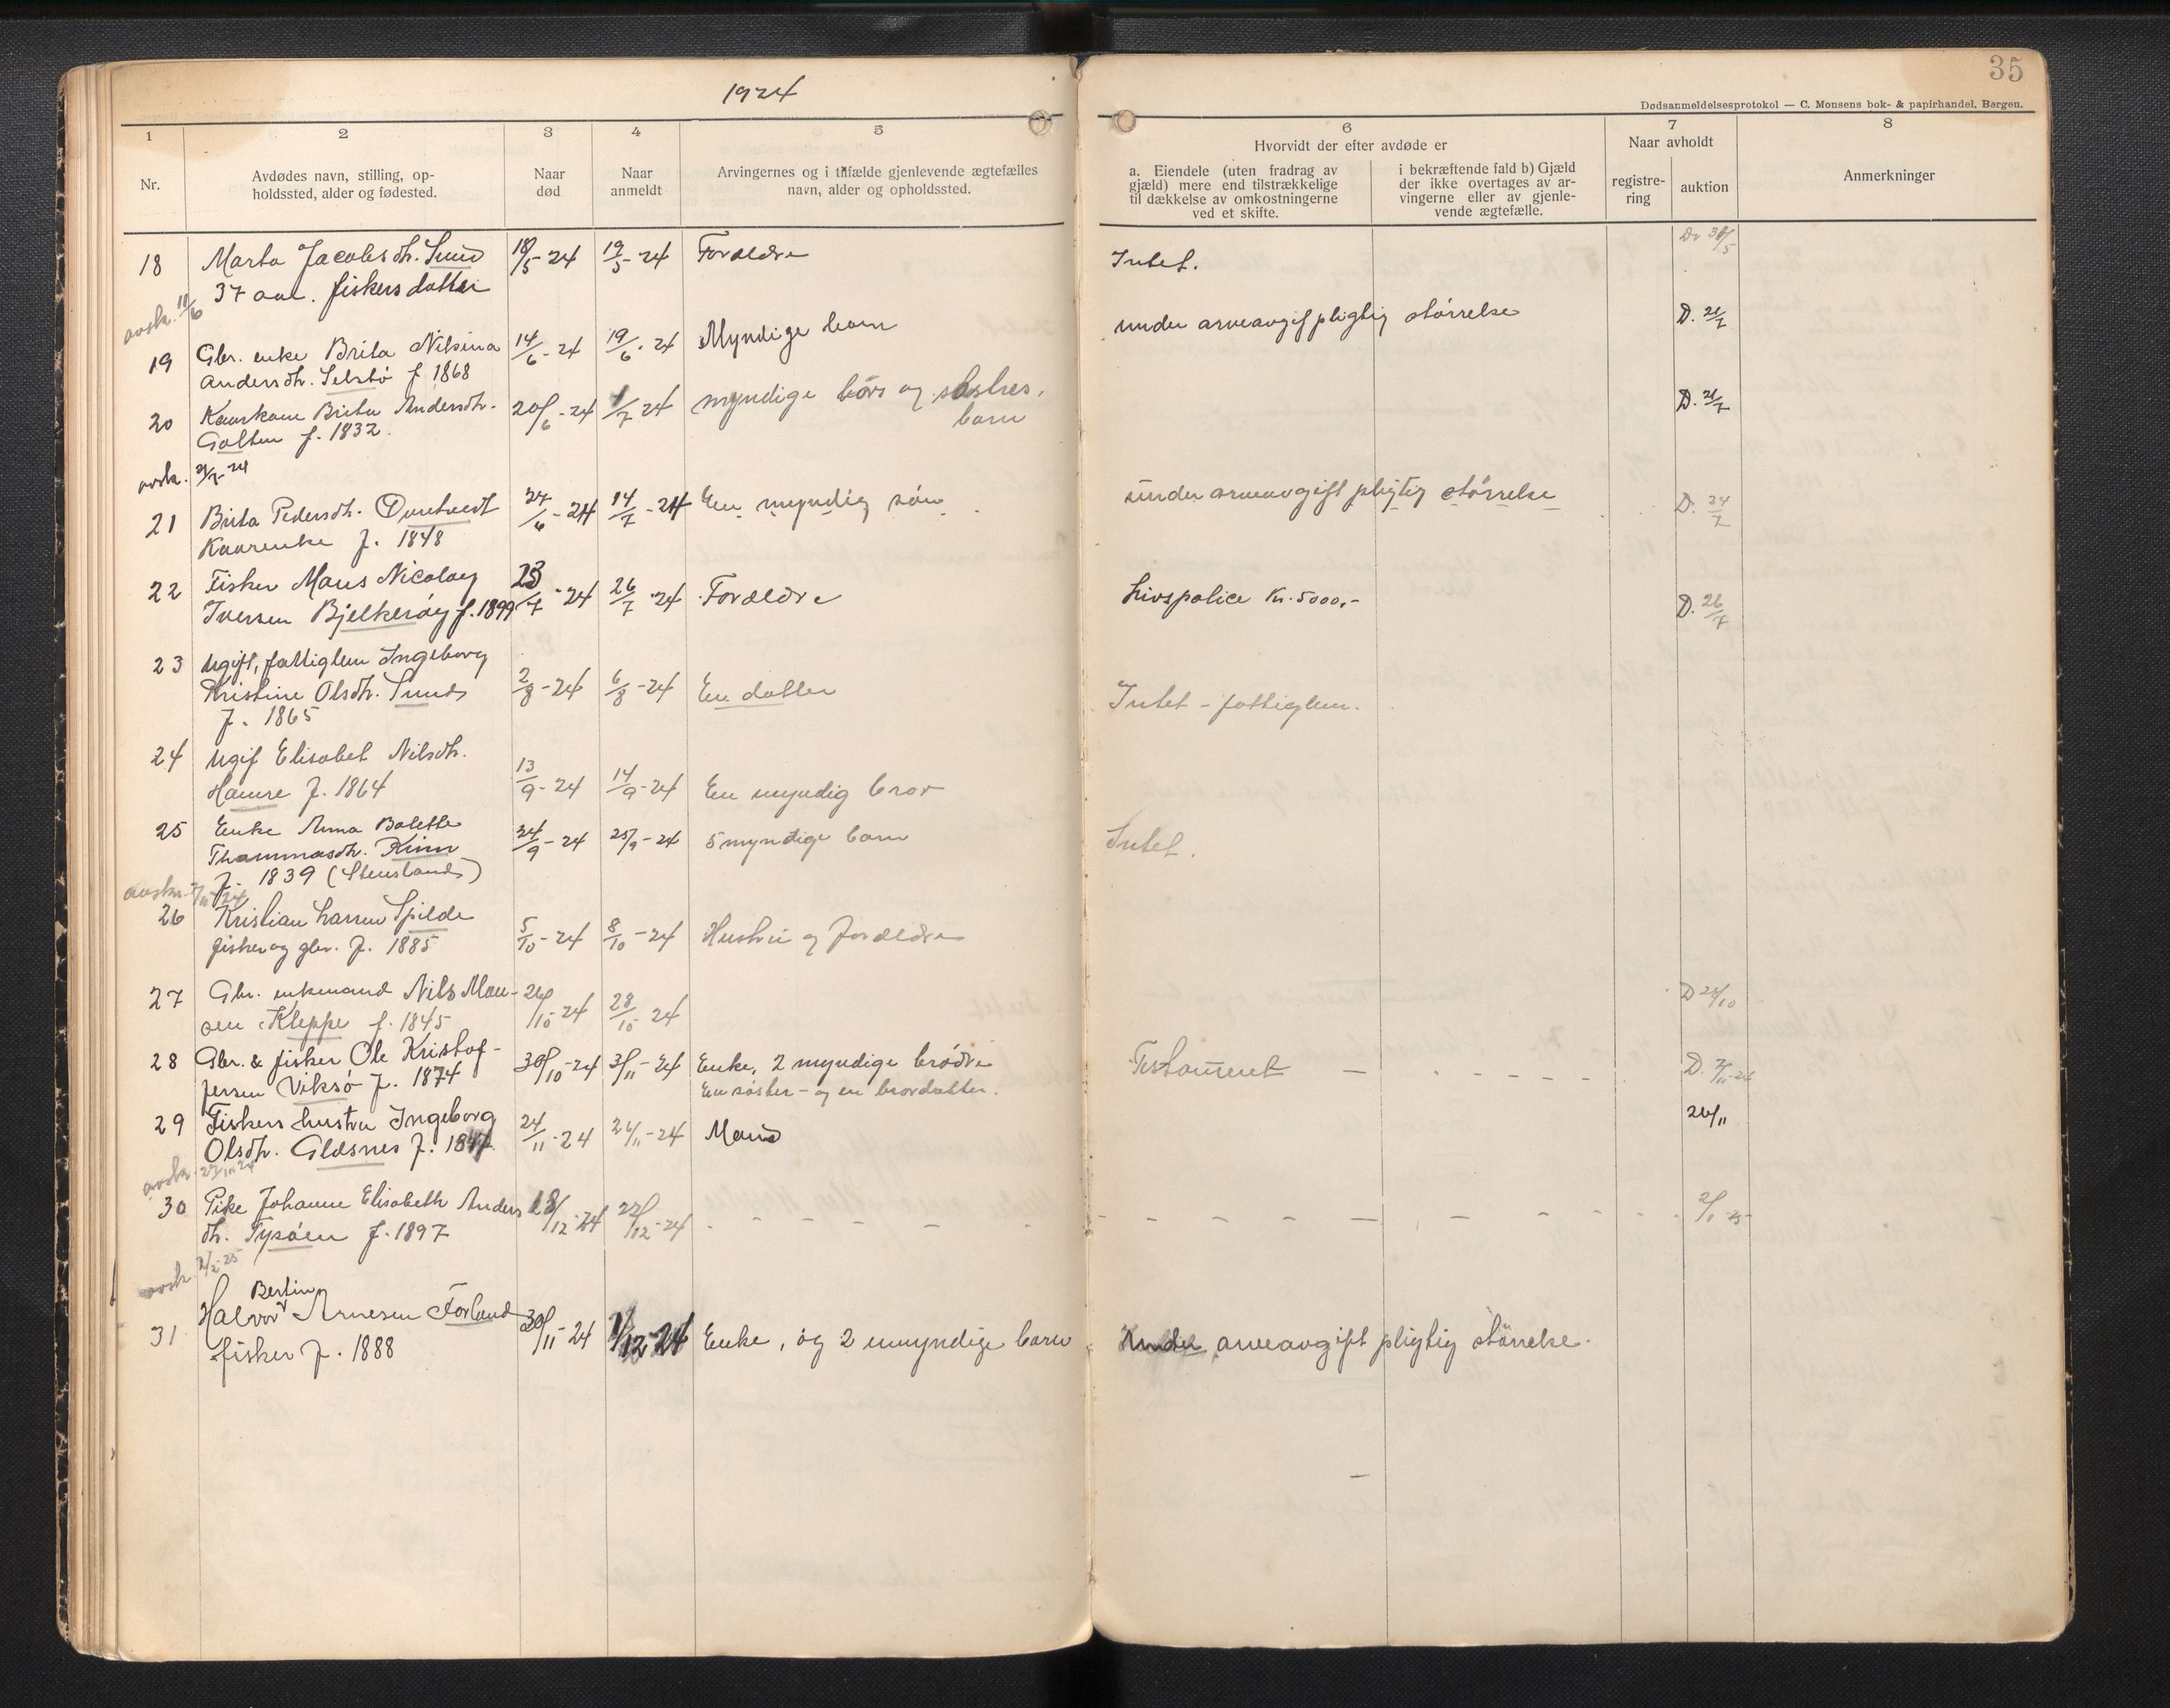 1924
35
Dødsanmeldelsesprotokol — C. Monsens bok- & papirhandel, Bergen.
1 2 3 4 5 6 7 8
Nr.
Avdødes navn, stilling, op-
holdssted, alder og fødested.
Naar
død
Naar
anmeldt
Arvingernes og i tilfælde gjenlevende ægtefælles
navn, alder og opholdssted.
Hvorvidt der efter avdøde er
a. Eiendele (uten fradrag av
gjæld) mere end tilstrækkelige
til dækkelse av omkostningerne
ved et skifte.
i bekræftende fald b) Gjæld
der ikke overtages av ar-
vingerne eller av gjenle-
vende ægtefælle.
Naar avholdt
registre-
ring
auktion
Anmerkninger
18 Marta Jacobsdh. Sund 18/5-24 19/5-24 Forældre Intet.
37 aar. fiskersdatter
avsk. 11/6
19 Gbr. enke Brita Nilsina 14/6-24 19/6-24 Myndige barn under arveavgifpligtig størrelse D. 21/7
Andersdh. Selstø f 1868
20 Kaarkone Brita Andersdh. 20/6-24 1/7 24 myndige børs og søstres. D. 21/7
Golten f. 1832. barn
avsk. 21/7-24
21 Brita Pedersdh. Ovretvedt 24/6-24 14/7-24 En myndig søn under arveavgift pligtig størrelse D. 24/7
Kaarenke f. 1848
22 Fisker Mons Nicolay 23/7-24 26/7-24 Forældre Livspolice Kr. 5000,- D. 26/7
Iversen Bjelkerøy f. 1899
23 Ugift, fattiglem Ingeborg
Kristine Olsdh. Sund 2/8-24 6/8-24 En datter Intet - fattiglem.
f. 1865
24 Ugif Elisabet Nilsdh.
Hamre f. 1864 13/9-24 14/9-24 En myndig bror
25 Enke Anna Bolette 24/9-24 25/9-24 5 myndige barn Intet.
Thommasdh. Kinn
f. 1839 (Stensland)
26 Kristian Larsen Spilde
fisker og gbr. f. 1885 5/10-24 8/10-24 Hustru og forældre
27 Gbr. enkemand Nils Mon- 26/10 24 28/10 24 D 28/10
sen Kleppe f. 1845
28 Gbr. & fisker Ole Kristof- 30/10-24 3/11-24 Enke, 2 myndige brødre Testament
fersen Viksø f. 1874 En søster - og en brordatter.
29 Fiskers hustru Ingeborg 24/11-24 26/11-24 Mand 26/11
Olsdh. Glæsnes f. 1847.
avsk. 27/11 24
30 Pike Johanne Elisabeth Anders 18/12-24 22/12-24 2/1-25
dh. Tysøen f. 1897
avsk. 2/2-25
Bertin
31 Halvor Arnesen Forland 30/11-24 1/12-24 Enke, og 2 umyndige barn Under arveavgift pligtig størrelse.
fisker f. 1888